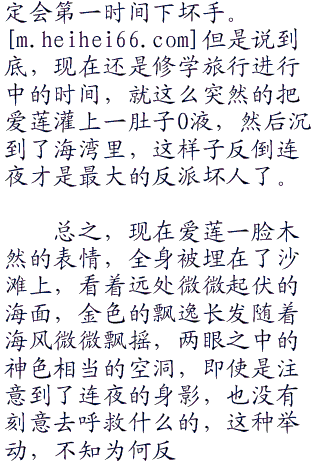 定会第一时间下坏手。
[m.heihei66.com]但是说到
底，现在还是修学旅行进行
中的时间，就这么突然的把
爱莲灌上一肚子O液，然后沉
到了海湾里，这样子反倒连
夜才是最大的反派坏人了。
总之，现在爱莲一脸木
然的表情，全身被埋在了沙
滩上，看着远处微微起伏的
海面，金色的飘逸长发随着
海风微微飘摇，两眼之中的
神色相当的空洞，即使是注
意到了连夜的身影，也没有
刻意去呼救什么的，这种举
动，不知为何反